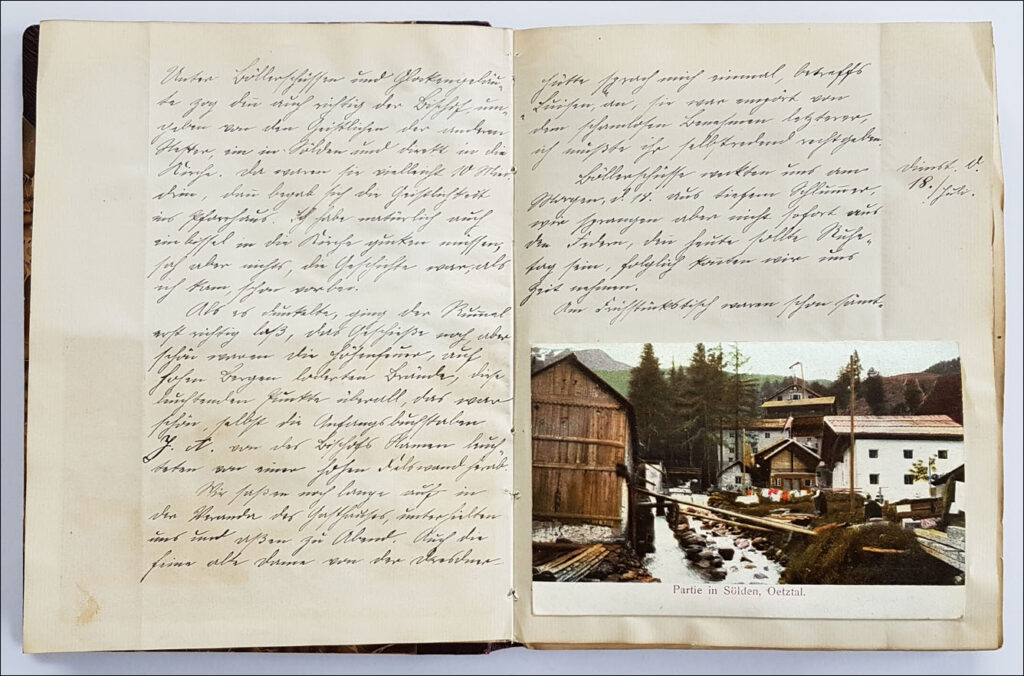 Unter Böllerschüssen und Glockengeläu-
te zog dann auch richtig der Bischof, um-
geben von den Geistlichen der anderen
ein in Sölden und direkt in die
Kirche. Da waren sie vielleicht 10 Mi-
nuten, dann begab sich die Geistlichkeit
ins Pfarrhaus. Ich habe natürlich auch
ein bissel in die Kirche gucken müssen,
sah aber nichts, die Geschichte war, als
ich kam, schon vorbei.
Als es dunkelte, ging der Rummel
erst richtig loß, das Geschieße noch, aber
schön waren die Höhenfeuer, auf
hohen Bergen loderten Brände, diese
leuchtenden Punkte überall, das war
schön, selbst die Anfangsbuchstaben
J. A. von des Bischofs Namen leuch-
teten von einer hohen Felswand herab.
Wir saßen noch lange auf in
der Veranda des Gasthauses, unterhielten
uns und aßen zu Abend. Auch die
feine alte Dame von der Dresdner-
hütte sprach mich einmal, betreffs
"Luisen", an, sie war empört von
dem schamlosen Benehmen letzterer,
ich mußte ihr selbstredend rechtgeben.
Böllerschüsse weckten uns am
Morgen, d. 18. aus tiefem Schlummer,
wir sprangen aber nicht sofort aus
den Federn, denn heute sollte Ruhe-
tag sein, folglich konnten wir uns
Zeit nehmen.
Am Frühstückstisch waren schon sämt-
Dienst. d.
18. Juli.
Partie in Sölden, Oetztal.